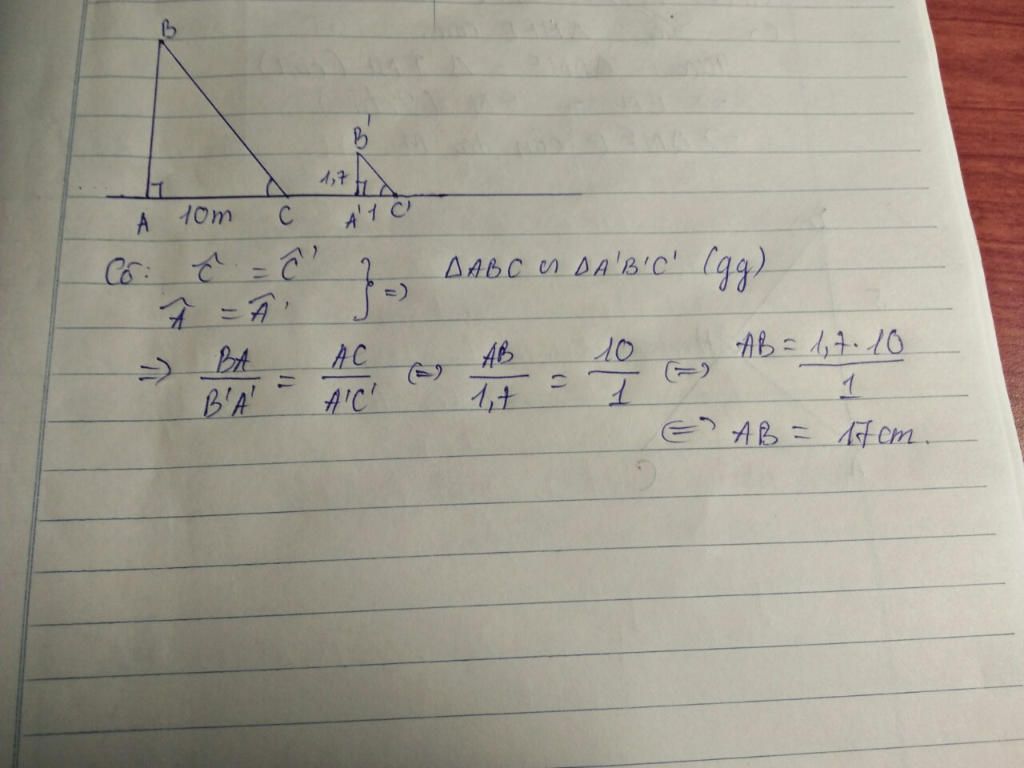 B
B'
1,7
A 10m C A' 1 C'
Có: Ĉ = Ĉ' } => ΔABC ∽ ΔA'B'C' (gg)
Â = Â'
=> BA/B'A' = AC/A'C' <=> AB/1,7 = 10/1 <=> AB = 1,7.10/1
<=> AB = 17cm.